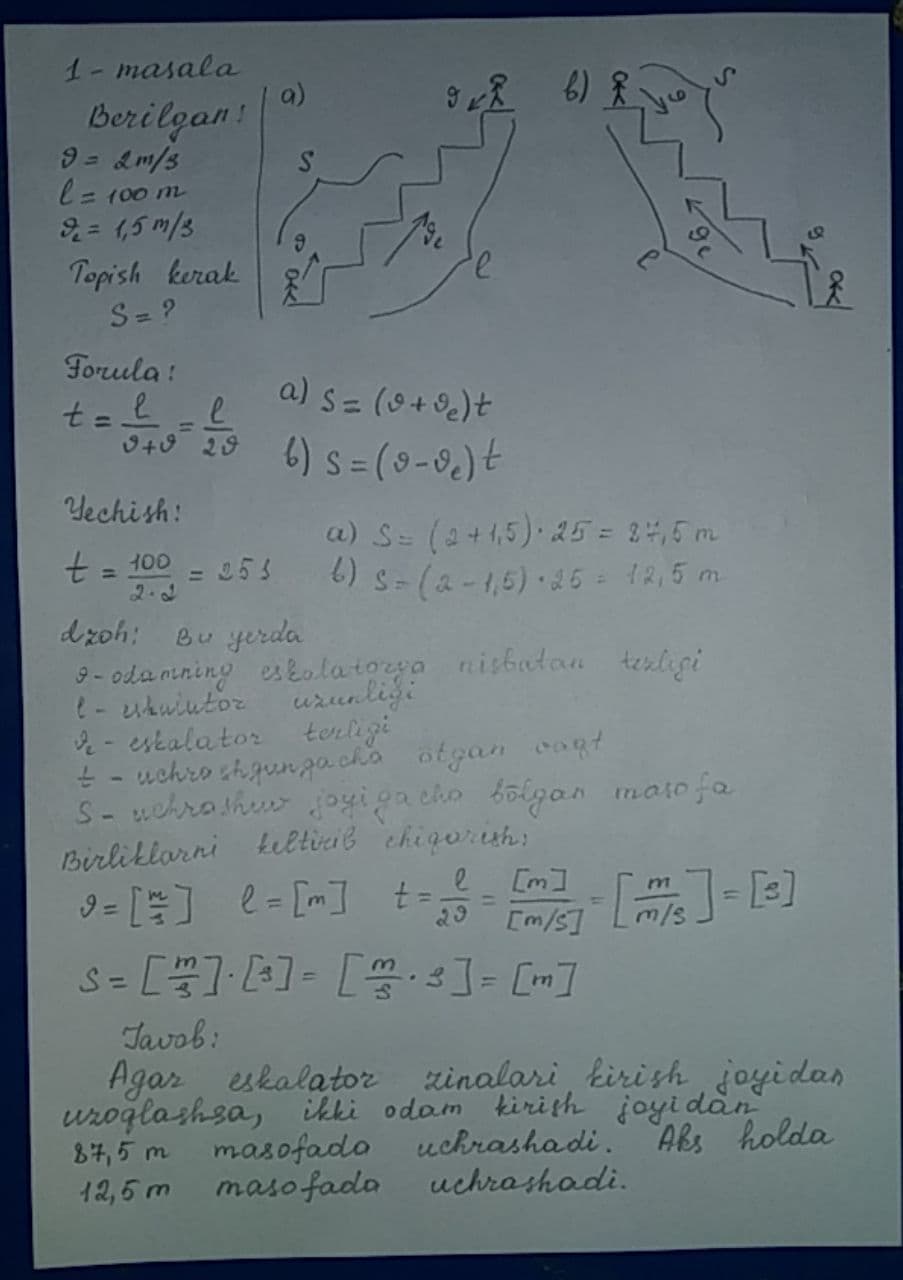 1 - masala
Berilgan:
ϑ = 2 m/s
l = 100 m
ϑe = 1,5 m/s
Topish kerak
S = ?
a)
ϑ
S
ϑ
ϑe
l
b)
ϑ
S
ϑe
l
ϑ
Forula:
t = l/(ϑ+ϑ) = l/2ϑ
a) S = (ϑ+ϑe)t
b) S = (ϑ-ϑe)t
Yechish:
t = 100/(2·2) = 25 s
a) S = (2+1,5)·25 = 87,5 m
b) S = (2-1,5)·25 = 12,5 m
Izoh: Bu yerda
ϑ - odamning eskalatorga nisbatan tezligi
l - eskalator uzunligi
ϑe - eskalator tezligi
t - uchrashgungacha ōtgan vaqt
S - uchrashuv joyigacha bōlgan masofa
Birliklarni keltirib chiqarish:
ϑ = [m/s] l = [m] t = l/2ϑ = [m]/[m/s] = [m/(m/s)] = [s]
S = [m/s]·[s] = [m/s · s] = [m]
Javob:
Agar eskalator zinalari kirish joyidan
uzoqlashsa, ikki odam kirish joyidan
87,5 m masofada uchrashadi. Aks holda
12,5 m masofada uchrashadi.